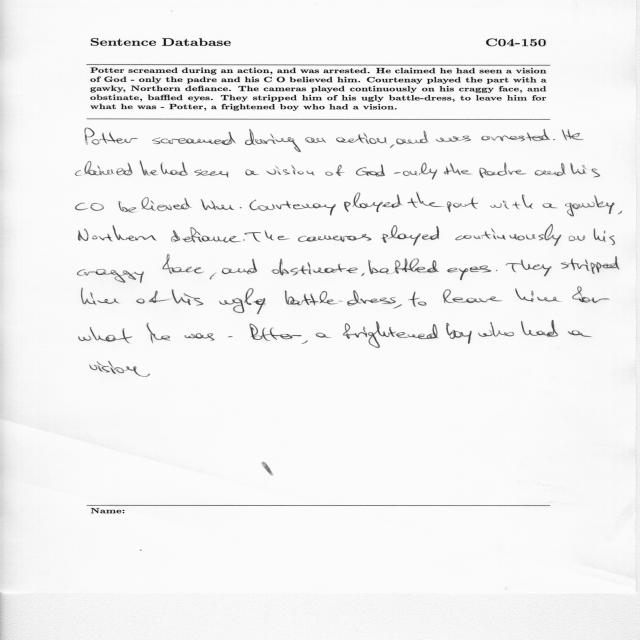 Sentence Database C04-150
Potter screamed during an action, and was arrested. He claimed he had seen a vision
of God - only the padre and his C O believed him. Courtenay played the part with a
gawky, Northern defiance. The cameras played continuously on his craggy face, and
obstinate, baffled eyes. They stripped him of his ugly battle-dress, to leave him for
what he was - Potter, a frightened boy who had a vision.
Potter screamed during an action, and was arrested. He
claimed he had seen a vision of God - only the padre and his
CO believed him. Courtenay played the part with a gawky,
Northern defiance. The cameras played continuously on his
craggy face, and obstinate, baffled eyes. They stripped
him of his ugly battle-dress, to leave him for
what he was - Potter, a frightened boy who had a
vision
Name: